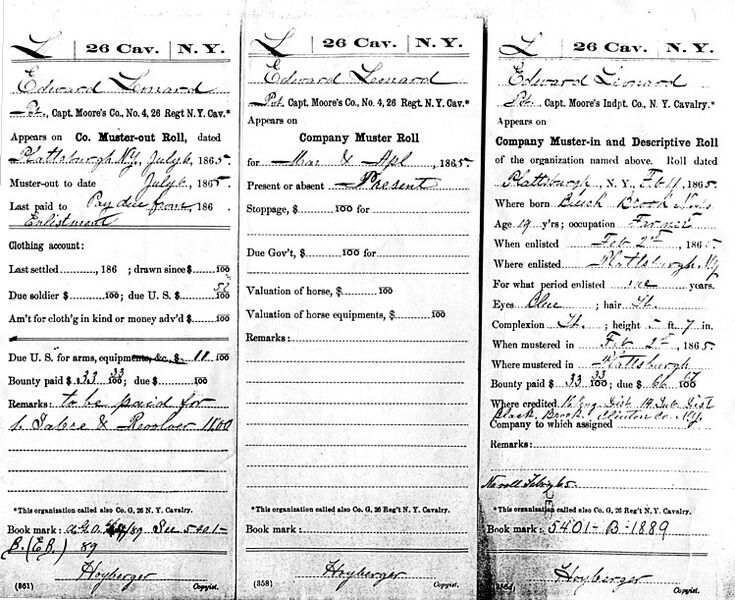 L 26 Cav. N. Y.
Edward Leonard
Pvt., Capt. Moore's Co., No. 4, 26 Regt N. Y. Cav.*
Appears on Co. Muster-out Roll, dated
Plattsburgh, N.Y. July 6, 1865.
Muster-out to date July 6, 1865.
Last paid to Pay due from, 186
Enlistment
Clothing account:
Last settled , 186 ; drawn since $ 100
Due soldier $ 100; due U. S. $ 52 100
Am't for cloth'g in kind or money adv'd $ 100
Due U. S. for arms, equipments, &c., $ 11 100
Bounty paid $ 33 33 100; due $ 100
Remarks: to be paid for
1. Sabre & Revolver 11.00
*This organization called also Co. G, 26 N. Y. Cavalry.
Book mark: A.G.O. 89 See 5401-
B. (E.B.) 89
Hoyberger
(361) Copyist.
L 26 Cav. N. Y.
Edward Leonard
Pvt., Capt. Moore's Co., No. 4, 26 Regt N. Y. Cav.*
Appears on
Company Muster Roll
for Mar & Apl, 1865.
Present or absent Present
Stoppage, $ 100 for
Due Gov't, $ 100 for
Valuation of horse, $ 100
Valuation of horse equipments, $ 100
Remarks:
*This organization called also Co. G, 26 Reg't N. Y. Cavalry.
Book mark:
Hoyberger
(358) Copyist.
L 26 Cav. N. Y.
Edward Leonard
Pvt. Capt. Moore's Indpt. Co., N. Y. Cavalry.*
Appears on
Company Muster-in and Descriptive Roll
of the organization named above. Roll dated
Plattsburgh, N. Y., Feb 11, 1865.
Where born Black Brook N.Y.
Age 19 y'rs; occupation Farmer
When enlisted Feb 2d, 1865
Where enlisted Plattsburgh N.Y.
For what period enlisted one years.
Eyes Blue ; hair Lt.
Complexion Lt. ; height 5 ft. 7 in.
When mustered in Feb 2d, 1865.
Where mustered in Plattsburgh
Bounty paid $ 33 33 100; due $ 66 67 100
Where credited 16 Cong. Dist 14 Sub. Dist
Black Brook, Clinton Co. N.Y.
Company to which assigned
Remarks:
*This organization called also Co. G, 26 Reg't N. Y. Cavalry.
Book mark: 5401-B-1889
Hoyberger
Copyist.